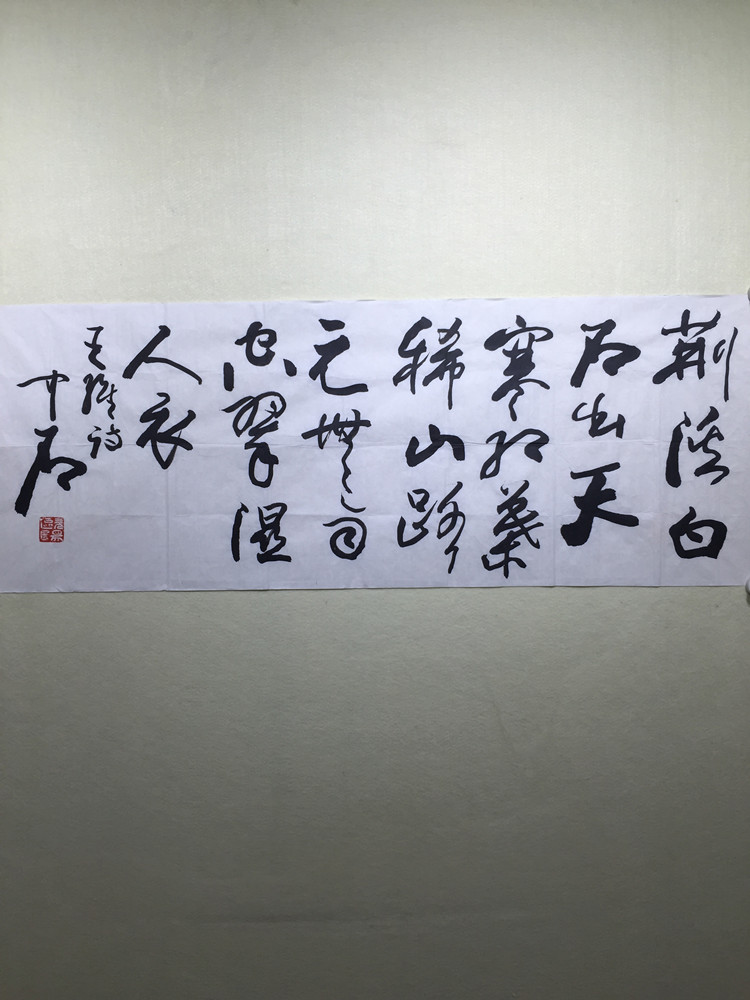 荆溪白
石出天
寒红葉
稀山路
元無雨
空翠湿
人衣
王維诗
中石